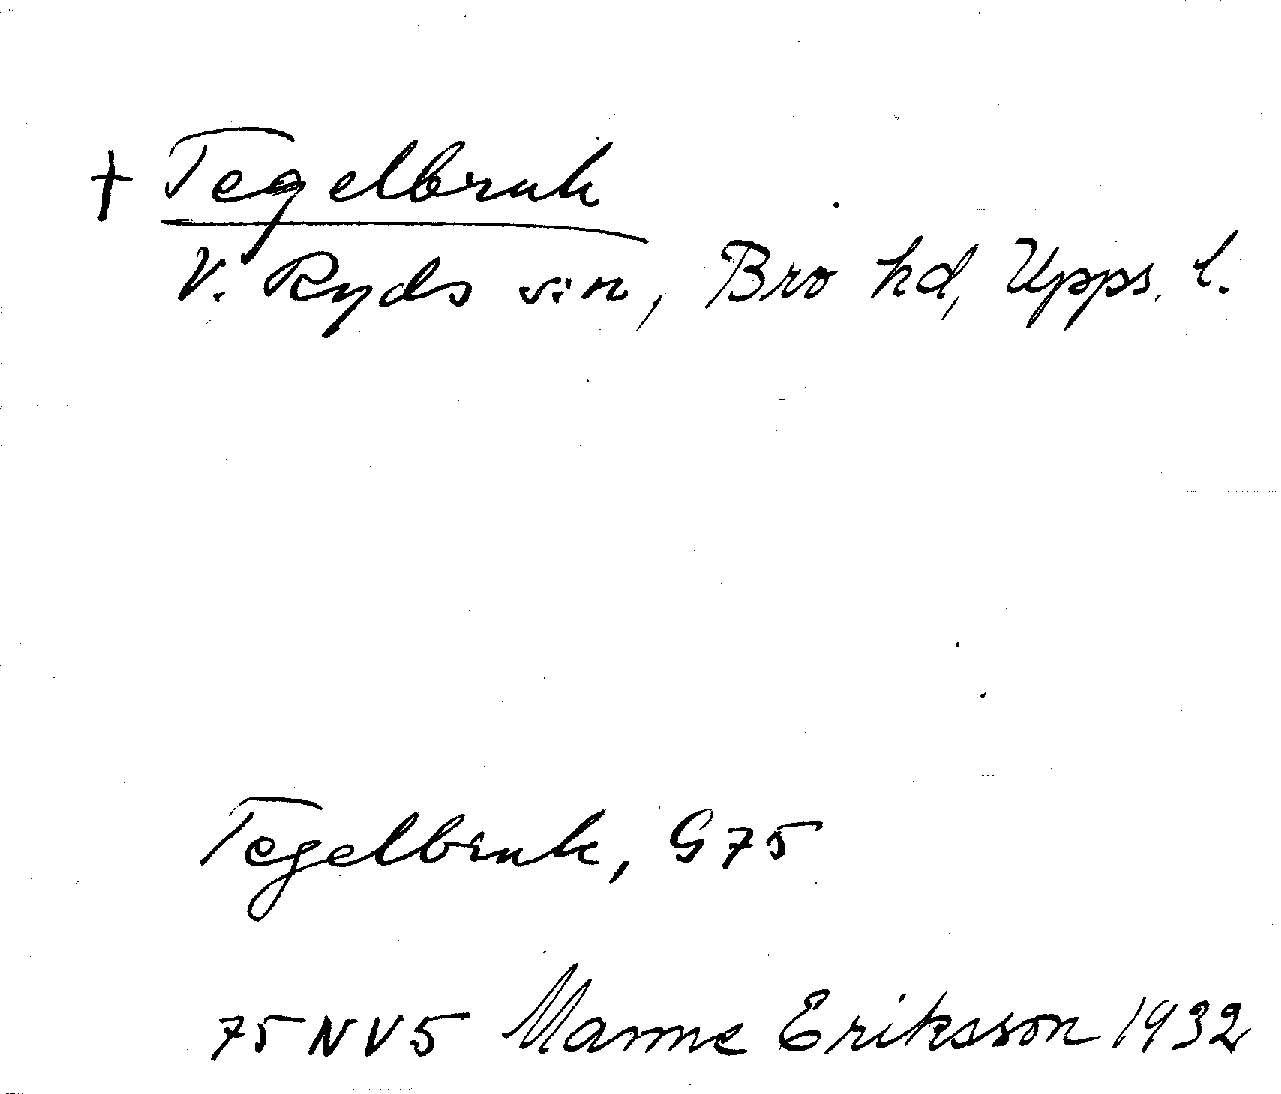 + Tegelbruk
V. Ryds sn, Bro hd, Upps. l.
Tegelbruk, G75
75 NV5 Manne Eriksson 1932